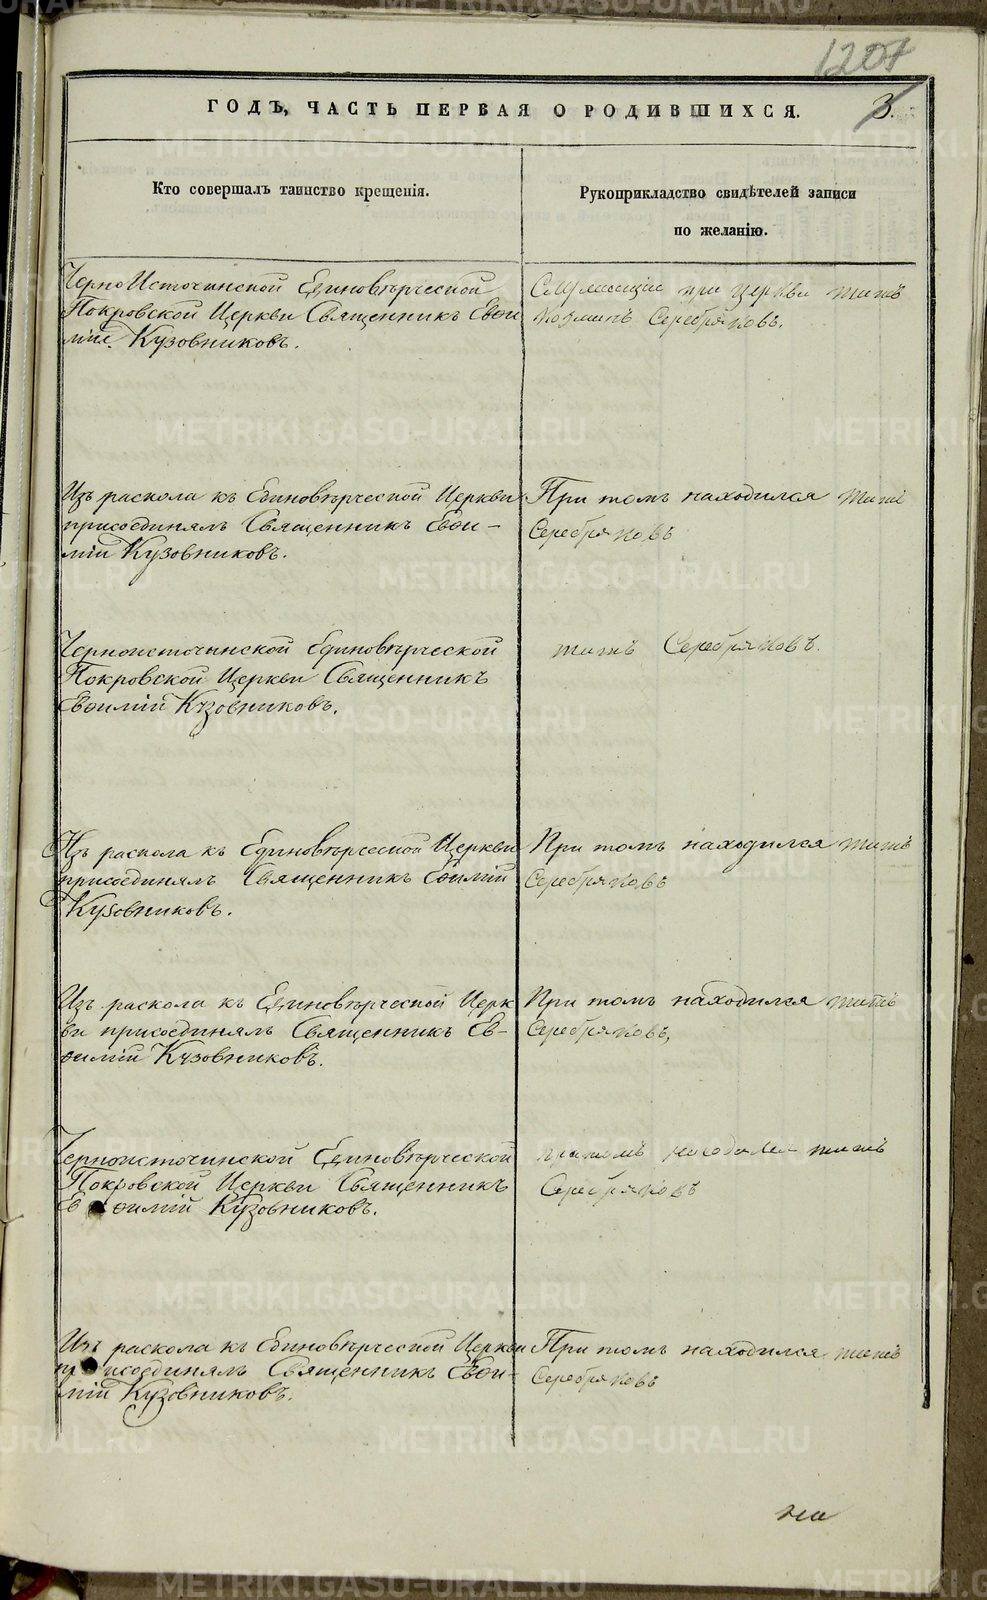 1207
ГОДЪ, ЧАСТЬ ПЕРВАЯ О РОДИВШИХСЯ. 3.
Кто совершалъ таинство крещенія.
Рукоприкладство свидѣтелей записи
по желанію.
ЧерноИсточинской Единовѣрческой
Покровской Церкви Священникъ Евѳи
мій Кузовниковъ.
при церкви
Серебряковъ.
Изъ раскола къ Единовѣрческой Церкви
присоединялъ Священникъ Евѳи-
мій Кузовниковъ.
При томъ находился Титъ
Серебряковъ
Черноисточынской Единовѣрческой
Покровской Церкви Священникъ
Евѳимій Кузовниковъ.
Титъ Серебряковъ.
Изъ раскола къ Единовѣрческой Церкви
присоединялъ Священникъ Евѳимій
Кузовниковъ.
При томъ находился Титъ
Серебряковъ
Изъ раскола къ Единовѣрческой Церк
ви присоединялъ Священникъ Ев-
ѳимій Кузовниковъ.
При томъ находился Титъ
Серебряковъ,
Черноисточинской Единовѣрческой
Покровской Церкви Священникъ
Евѳимій Кузовниковъ.
находился Титъ
Серебряковъ
Изъ раскола къ Единовѣрческой Церкви
присоединялъ Священникъ Евѳи-
мій Кузовниковъ.
При томъ находился Титъ
Серебряковъ
на
METRIKI.GASO-URAL.RU